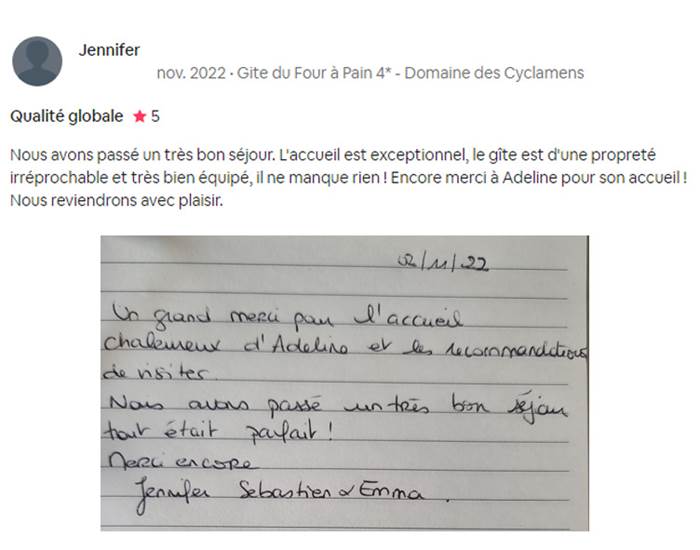 Jennifer
nov. 2022 · Gite du Four à Pain 4* - Domaine des Cyclamens
Qualité globale ★ 5
Nous avons passé un très bon séjour. L'accueil est exceptionnel, le gîte est d'une propreté
irréprochable et très bien équipé, il ne manque rien ! Encore merci à Adeline pour son accueil !
Nous reviendrons avec plaisir.
02/11/22
Un grand merci pour l'accueil
chaleureux d'Adeline et les recommandations
de visites.
Nous avons passé un très bon séjour
tout était parfait !
Merci encore
Jennifer Sebastien & Emma.